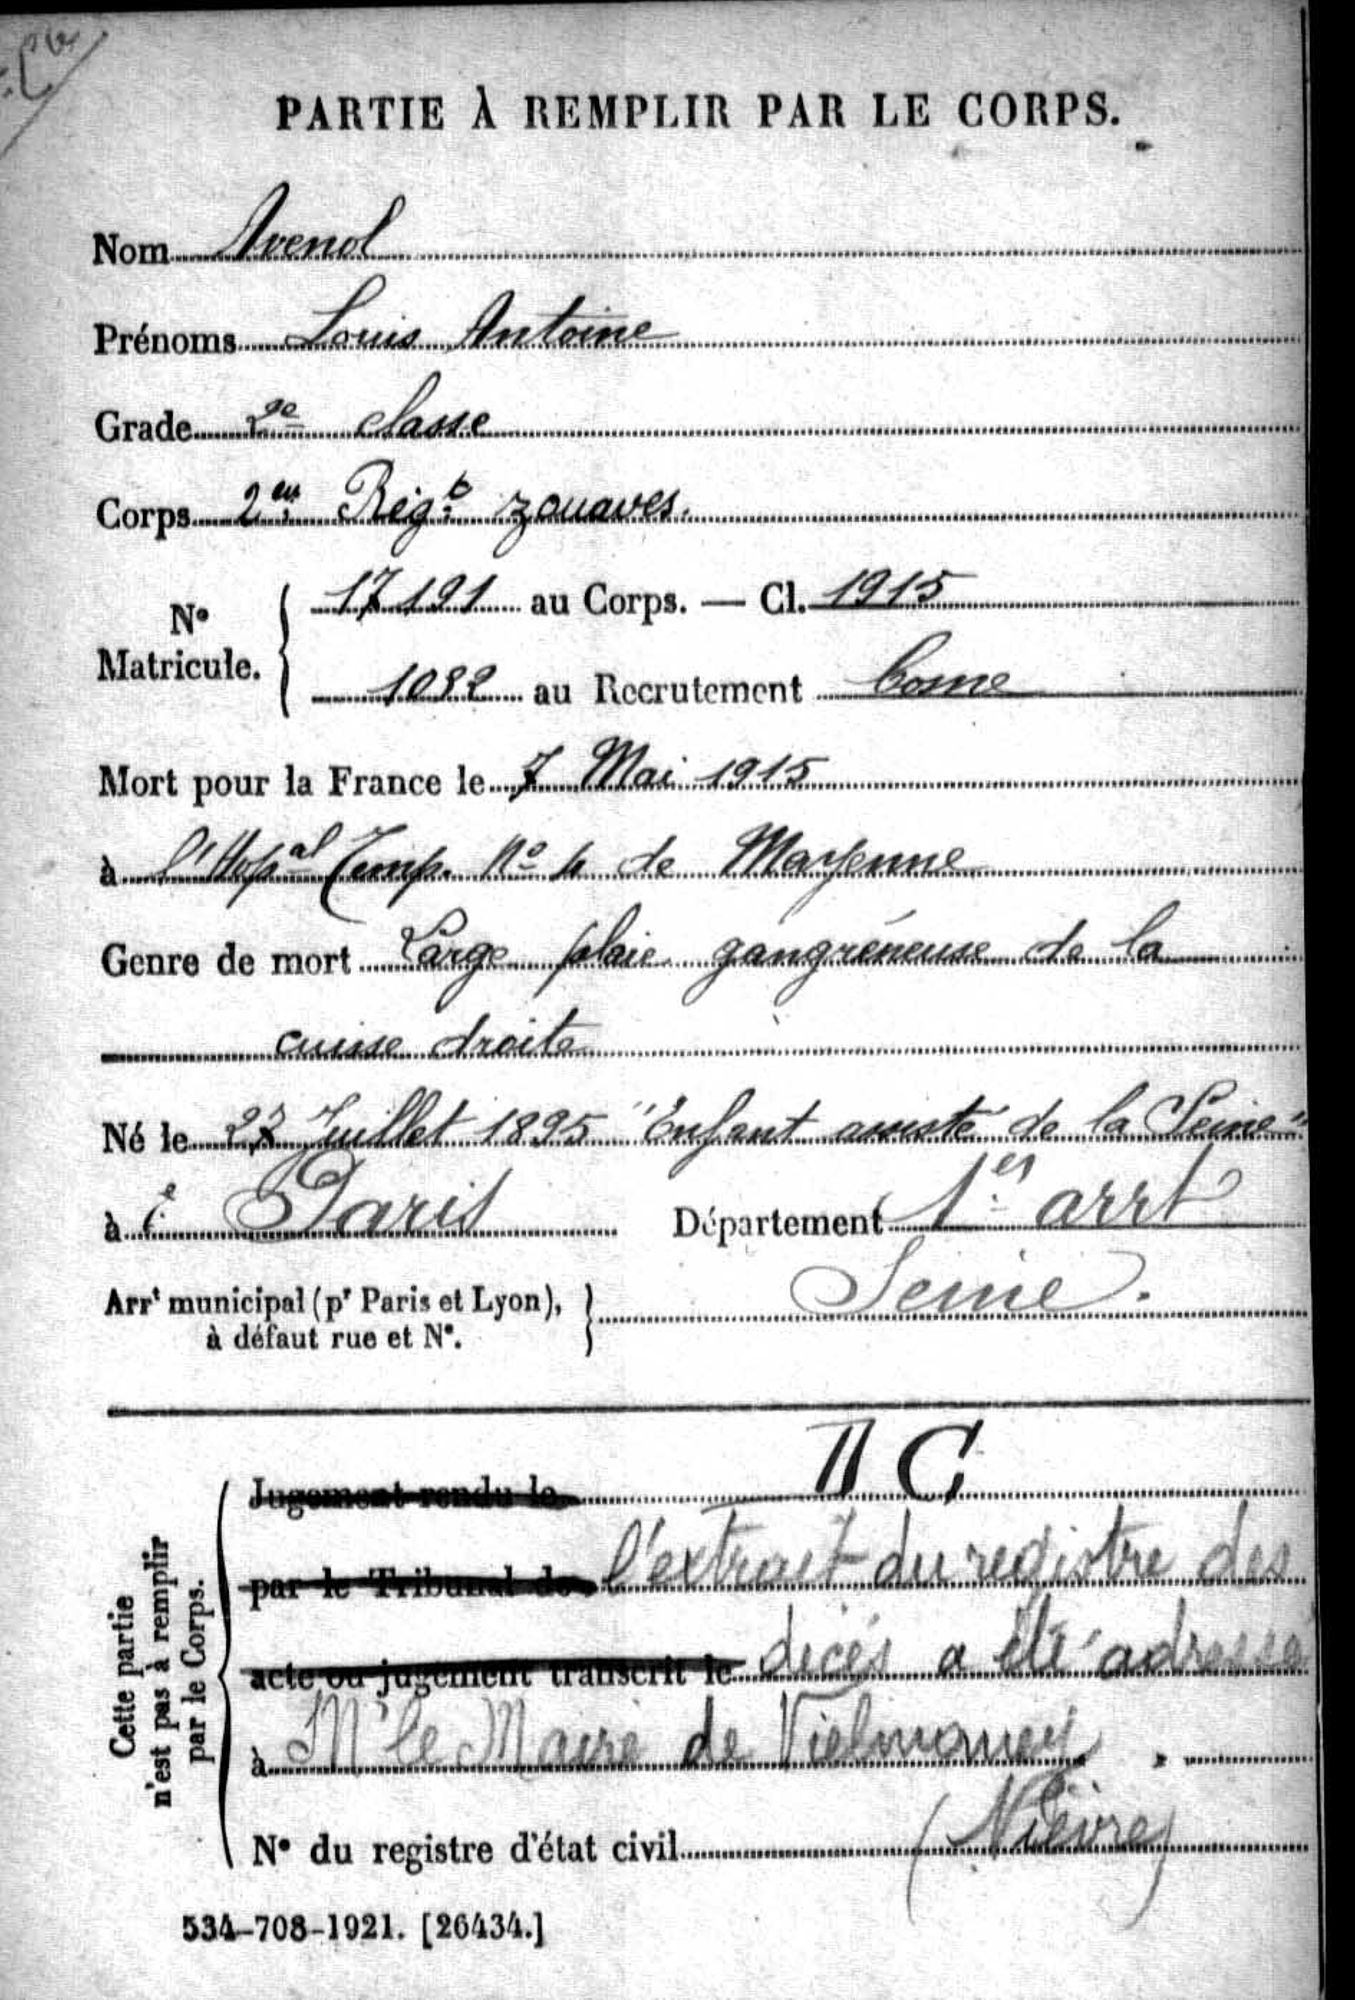 PARTIE À REMPLIR PAR LE CORPS.
Nom Avenol
Prénoms Louis Antoine
Grade 2e classe
Corps 2em Régt zouaves.
No Matricule. { 17191 au Corps. — Cl. 1915
1082 au Recrutement Cosne
Mort pour la France le 7 Mai 1915
à l'Hopal Temp. No 4 de Mayenne
Genre de mort Large plaie gangréneuse de la
cuisse droite
Né le 27 Juillet 1895 "Enfant assisté de la Seine"
à Paris Département 1er arrt
Arrt municipal (pr Paris et Lyon), à défaut rue et No. } Seine.
Cette partie n'est pas à remplir par le Corps.
Jugement rendu le
par le Tribunal de l'extrait du registre des
acte ou jugement transcrit le décés a été adressé
à Mr le Maire de Vielmanay
No du registre d'état civil (Nièvre)
534-708-1921. [26434.]